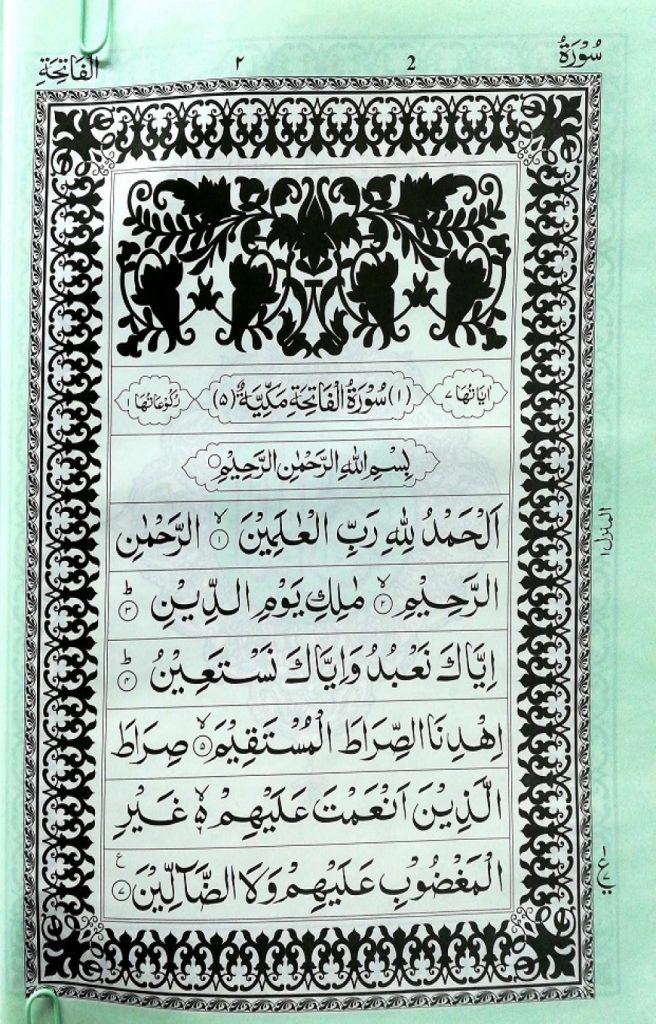 سُوْرَةُ 2 ٢ الْفَاتِحَةِ
اٰيَاتُهَا ٧ (١) سُوْرَةُ الْفَاتِحَةِ مَكِّيَّةٌ (٥) رُكُوْعَاتُهَا ١
بِسْمِ اللهِ الرَّحْمٰنِ الرَّحِيْمِ
اَلْحَمْدُ لِلّٰهِ رَبِّ الْعٰلَمِيْنَ ۙ﴿١﴾ الرَّحْمٰنِ
الرَّحِيْمِ ۙ﴿٢﴾ مٰلِكِ يَوْمِ الدِّيْنِ ؕ﴿٣﴾
اِيَّاكَ نَعْبُدُ وَاِيَّاكَ نَسْتَعِيْنُ ؕ﴿٤﴾
اِهْدِنَا الصِّرَاطَ الْمُسْتَقِيْمَ ۙ﴿٥﴾ صِرَاطَ
الَّذِيْنَ اَنْعَمْتَ عَلَيْهِمْ ۙ۬ۦ غَيْرِ
الْمَغْضُوْبِ عَلَيْهِمْ وَلَا الضَّآلِّيْنَ ﴿٧﴾ ع
المنزل ١
ع